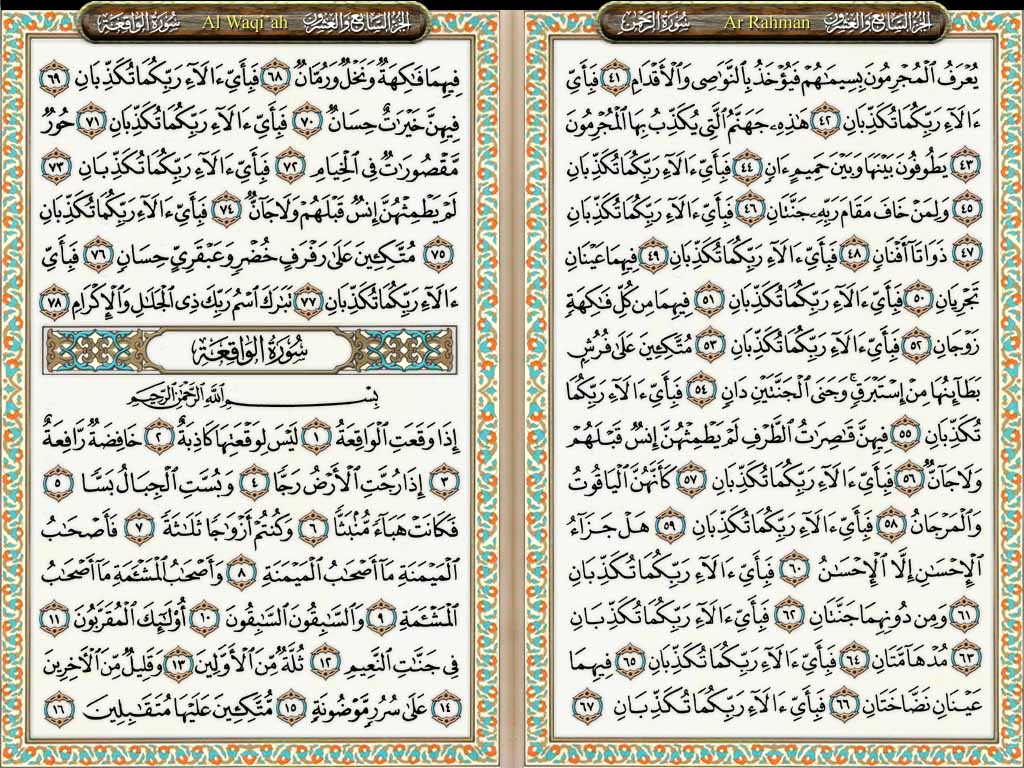 Ar Rahman سورة الرحمن الجزء السابع والعشرون
يُعْرَفُ الْمُجْرِمُونَ بِسِيمَـٰهُمْ فَيُؤْخَذُ بِالنَّوَٰصِى وَالْأَقْدَامِ ٤١ فَبِأَىِّ
ءَالَآءِ رَبِّكُمَا تُكَذِّبَانِ ٤٢ هَـٰذِهِۦ جَهَنَّمُ الَّتِى يُكَذِّبُ بِهَا الْمُجْرِمُونَ
٤٣ يَطُوفُونَ بَيْنَهَا وَبَيْنَ حَمِيمٍ ءَانٍ ٤٤ فَبِأَىِّ ءَالَآءِ رَبِّكُمَا تُكَذِّبَانِ
٤٥ وَلِمَنْ خَافَ مَقَامَ رَبِّهِۦ جَنَّتَانِ ٤٦ فَبِأَىِّ ءَالَآءِ رَبِّكُمَا تُكَذِّبَانِ
٤٧ ذَوَاتَآ أَفْنَانٍ ٤٨ فَبِأَىِّ ءَالَآءِ رَبِّكُمَا تُكَذِّبَانِ ٤٩ فِيهِمَا عَيْنَانِ
تَجْرِيَانِ ٥٠ فَبِأَىِّ ءَالَآءِ رَبِّكُمَا تُكَذِّبَانِ ٥١ فِيهِمَا مِن كُلِّ فَـٰكِهَةٍ
زَوْجَانِ ٥٢ فَبِأَىِّ ءَالَآءِ رَبِّكُمَا تُكَذِّبَانِ ٥٣ مُتَّكِـِٔينَ عَلَىٰ فُرُشٍۭ
بَطَآئِنُهَا مِنْ إِسْتَبْرَقٍ ۚ وَجَنَى الْجَنَّتَيْنِ دَانٍ ٥٤ فَبِأَىِّ ءَالَآءِ رَبِّكُمَا
تُكَذِّبَانِ ٥٥ فِيهِنَّ قَـٰصِرَٰتُ الطَّرْفِ لَمْ يَطْمِثْهُنَّ إِنسٌ قَبْلَهُمْ
وَلَا جَآنٌّ ٥٦ فَبِأَىِّ ءَالَآءِ رَبِّكُمَا تُكَذِّبَانِ ٥٧ كَأَنَّهُنَّ الْيَاقُوتُ
وَالْمَرْجَانُ ٥٨ فَبِأَىِّ ءَالَآءِ رَبِّكُمَا تُكَذِّبَانِ ٥٩ هَلْ جَزَآءُ
الْإِحْسَـٰنِ إِلَّا الْإِحْسَـٰنُ ٦٠ فَبِأَىِّ ءَالَآءِ رَبِّكُمَا تُكَذِّبَانِ
٦١ وَمِن دُونِهِمَا جَنَّتَانِ ٦٢ فَبِأَىِّ ءَالَآءِ رَبِّكُمَا تُكَذِّبَانِ
٦٣ مُدْهَآمَّتَانِ ٦٤ فَبِأَىِّ ءَالَآءِ رَبِّكُمَا تُكَذِّبَانِ ٦٥ فِيهِمَا
عَيْنَانِ نَضَّاخَتَانِ ٦٦ فَبِأَىِّ ءَالَآءِ رَبِّكُمَا تُكَذِّبَانِ ٦٧
Al Waqi ah سورة الواقعة الجزء السابع والعشرون
فِيهِمَا فَـٰكِهَةٌ وَنَخْلٌ وَرُمَّانٌ ٦٨ فَبِأَىِّ ءَالَآءِ رَبِّكُمَا تُكَذِّبَانِ ٦٩
فِيهِنَّ خَيْرَٰتٌ حِسَانٌ ٧٠ فَبِأَىِّ ءَالَآءِ رَبِّكُمَا تُكَذِّبَانِ ٧١ حُورٌ
مَّقْصُورَٰتٌ فِى الْخِيَامِ ٧٢ فَبِأَىِّ ءَالَآءِ رَبِّكُمَا تُكَذِّبَانِ ٧٣
لَمْ يَطْمِثْهُنَّ إِنسٌ قَبْلَهُمْ وَلَا جَآنٌّ ٧٤ فَبِأَىِّ ءَالَآءِ رَبِّكُمَا تُكَذِّبَانِ
٧٥ مُتَّكِـِٔينَ عَلَىٰ رَفْرَفٍ خُضْرٍ وَعَبْقَرِىٍّ حِسَانٍ ٧٦ فَبِأَىِّ
ءَالَآءِ رَبِّكُمَا تُكَذِّبَانِ ٧٧ تَبَـٰرَكَ اسْمُ رَبِّكَ ذِى الْجَلَـٰلِ وَالْإِكْرَامِ ٧٨
سُورَةُ الْوَاقِعَةِ
بِسْمِ اللَّهِ الرَّحْمَـٰنِ الرَّحِيمِ
إِذَا وَقَعَتِ الْوَاقِعَةُ ١ لَيْسَ لِوَقْعَتِهَا كَاذِبَةٌ ٢ خَافِضَةٌ رَّافِعَةٌ
٣ إِذَا رُجَّتِ الْأَرْضُ رَجًّا ٤ وَبُسَّتِ الْجِبَالُ بَسًّا ٥
فَكَانَتْ هَبَآءً مُّنۢبَثًّا ٦ وَكُنتُمْ أَزْوَٰجًا ثَلَـٰثَةً ٧ فَأَصْحَـٰبُ
الْمَيْمَنَةِ مَآ أَصْحَـٰبُ الْمَيْمَنَةِ ٨ وَأَصْحَـٰبُ الْمَشْـَٔمَةِ مَآ أَصْحَـٰبُ
الْمَشْـَٔمَةِ ٩ وَالسَّـٰبِقُونَ السَّـٰبِقُونَ ١٠ أُو۟لَـٰٓئِكَ الْمُقَرَّبُونَ ١١
فِى جَنَّـٰتِ النَّعِيمِ ١٢ ثُلَّةٌ مِّنَ الْأَوَّلِينَ ١٣ وَقَلِيلٌ مِّنَ الْـَٔاخِرِينَ
١٤ عَلَىٰ سُرُرٍ مَّوْضُونَةٍ ١٥ مُّتَّكِـِٔينَ عَلَيْهَا مُتَقَـٰبِلِينَ ١٦